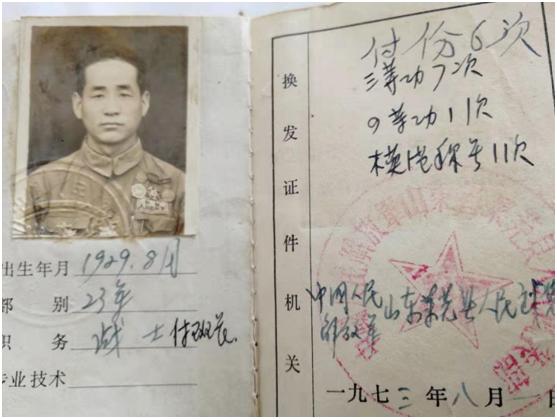 出生年月 1929.8月
部 别 23军
职 务 战士 付班长
专业技术
换发证件机关
付份6次
三等功7次
四等功11次
模范称号11次
中国人民
解放军 山东 县人民武
一九七三年八月 日